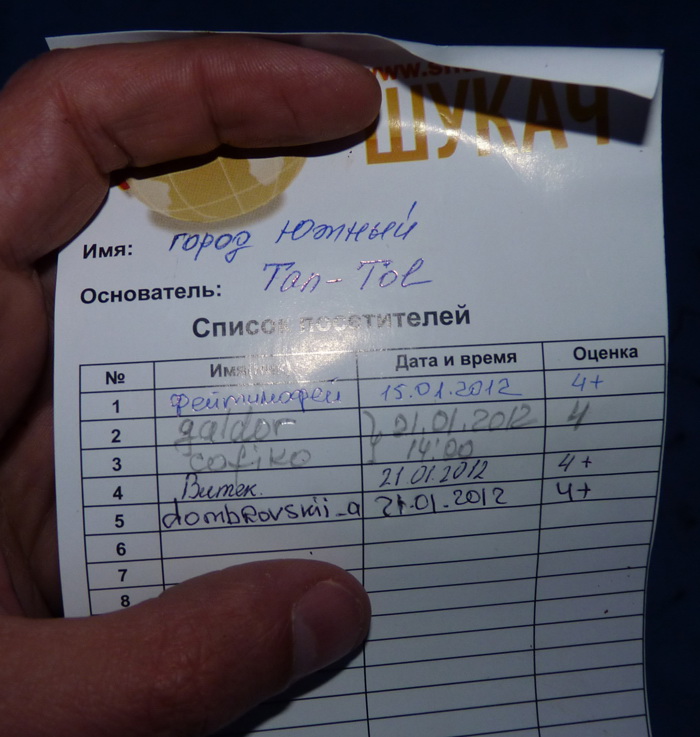 ШУКАЧ
Имя: город Южный
Основатель: Tan-Tol
Список посетителей
№ Имя Дата и время Оценка
1 фейтимофей 15.01.2012 4+
2 galdor } 21.01.2012 4
3 cofiko 14:00
4 Витек. 21.01.2012 4+
5 dombRovskii_a 21.01.2012 4+
6
7
8